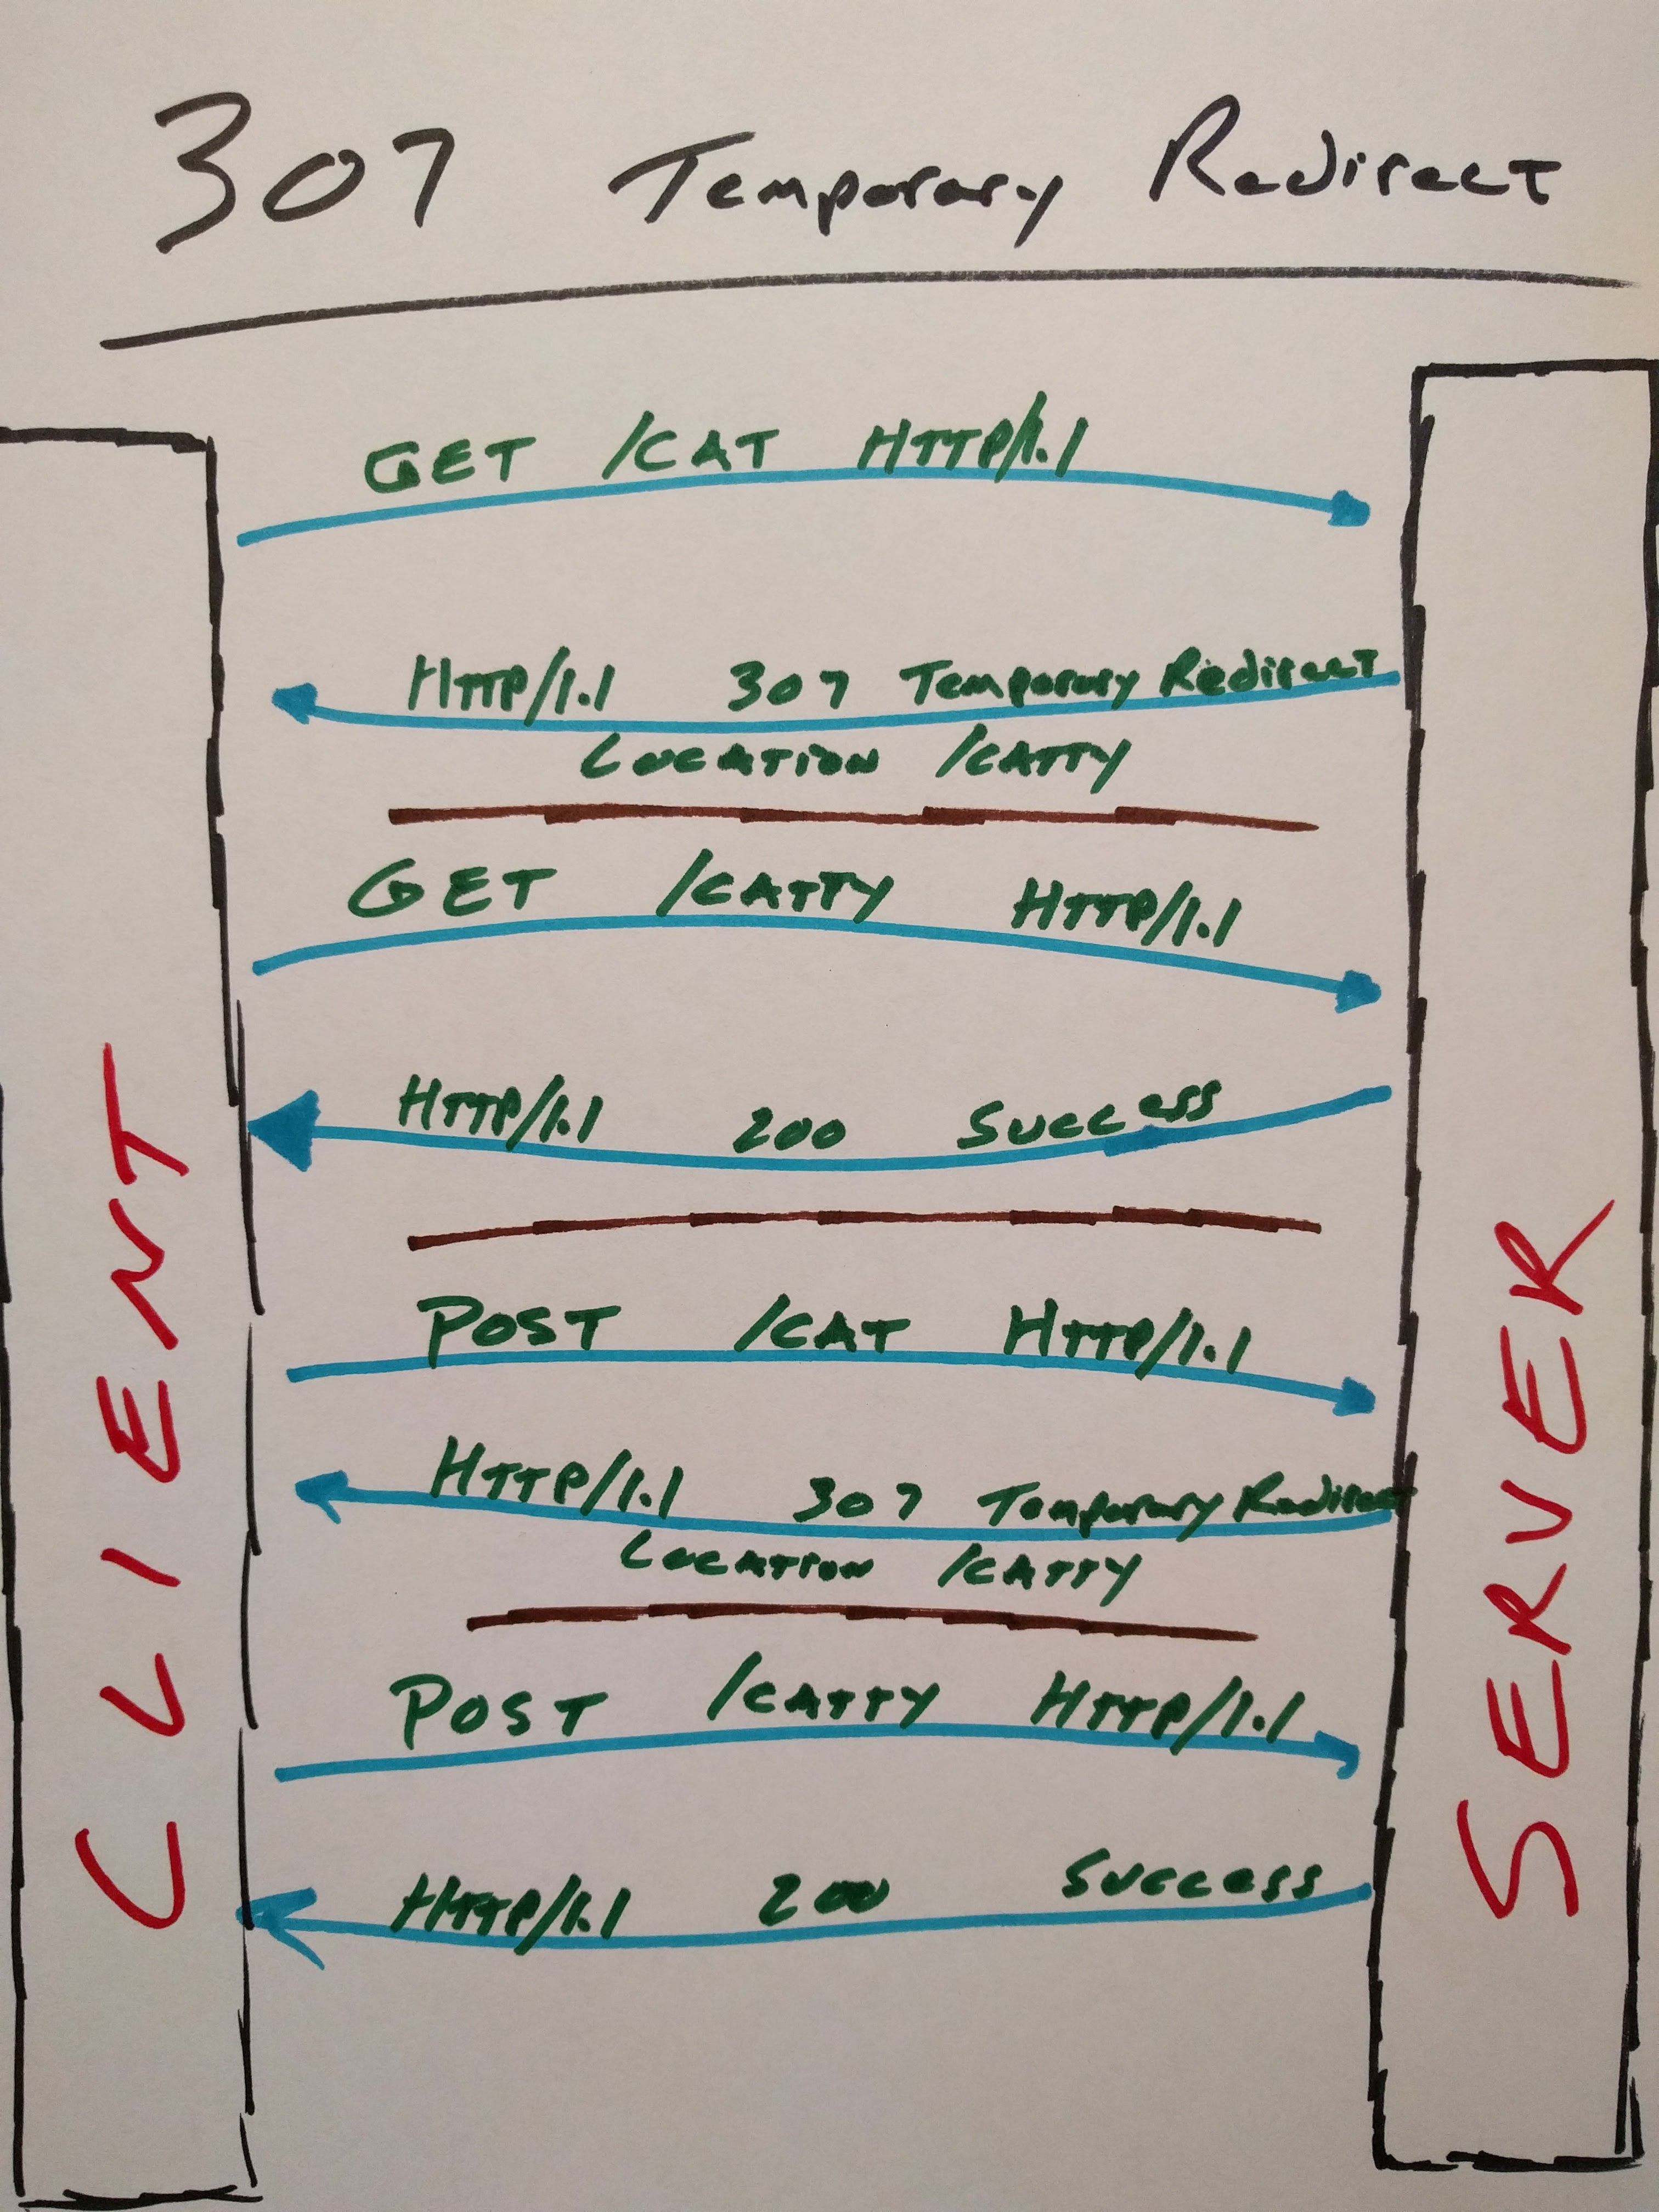 307 Temporary Redirect
GET /CAT HTTP/1.1
HTTP/1.1 307 Temporary Redirect
LOCATION /CATTY
GET /CATTY HTTP/1.1
HTTP/1.1 200 Success
POST /CAT HTTP/1.1
HTTP/1.1 307 Temporary Redirect
LOCATION /CATTY
POST /CATTY HTTP/1.1
HTTP/1.1 200 Success
CLIENT
SERVER